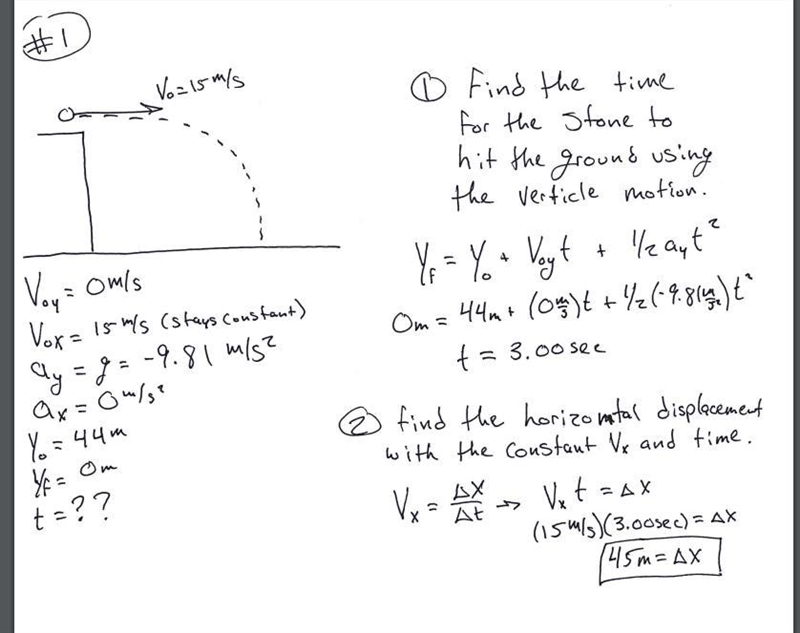 #1
V₀=15 m/s
V₀y = 0 m/s
V₀x = 15 m/s (stays constant)
ay = g = -9.81 m/s²
ax = 0 m/s²
Y₀ = 44m
Yf = 0m
t = ??
① Find the time
for the stone to
hit the ground using
the verticle motion.
Yf = Y₀ + V₀yt + 1/2 ayt²
0m = 44m + (0 m/s)t + 1/2(-9.81 m/s²)t²
t = 3.00 sec
② find the horizontal displacement
with the constant Vx and time.
Vx = ΔX/Δt → Vx t = ΔX
(15 m/s)(3.00 sec) = ΔX
45m = ΔX